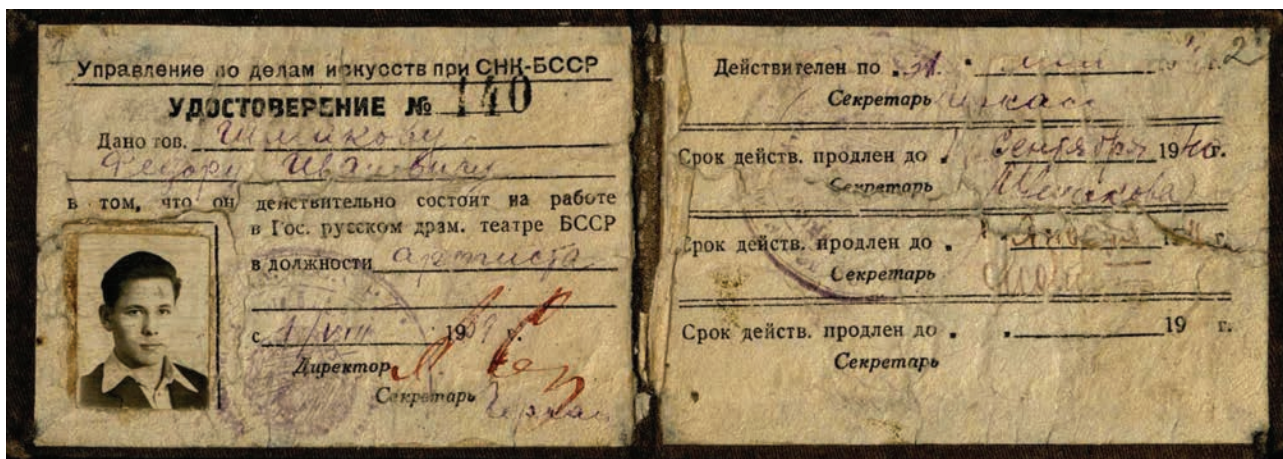 Управление по делам искусств при СНК-БССР
УДОСТОВЕРЕНИЕ № 140
Дано тов. Шмакову
Федору Ивановичу
в том, что он действительно состоит на работе
в Гос. русском драм. театре БССР
в должности артиста
с 1/VIII 1939 г.
Директор
Секретарь Черкас
2
Действителен по 31. мая 19 г.
Секретарь Черкас
Срок действ. продлен до 1 Сентября 1940 г.
Секретарь
Срок действ. продлен до 1 Января 1941 г.
Секретарь
Срок действ. продлен до 19 г.
Секретарь